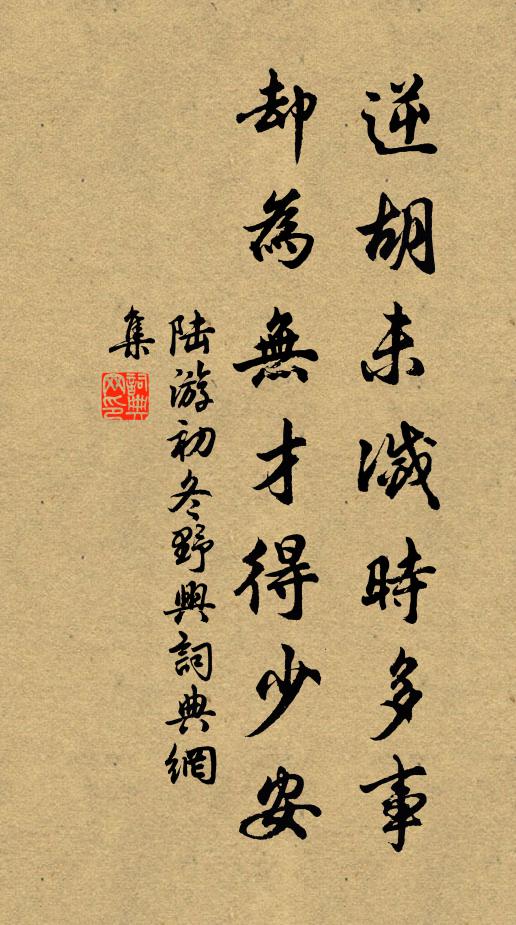 逆胡未滅時多事
却為無才得少安
陸游初冬野興詞典網
集
詞典網印